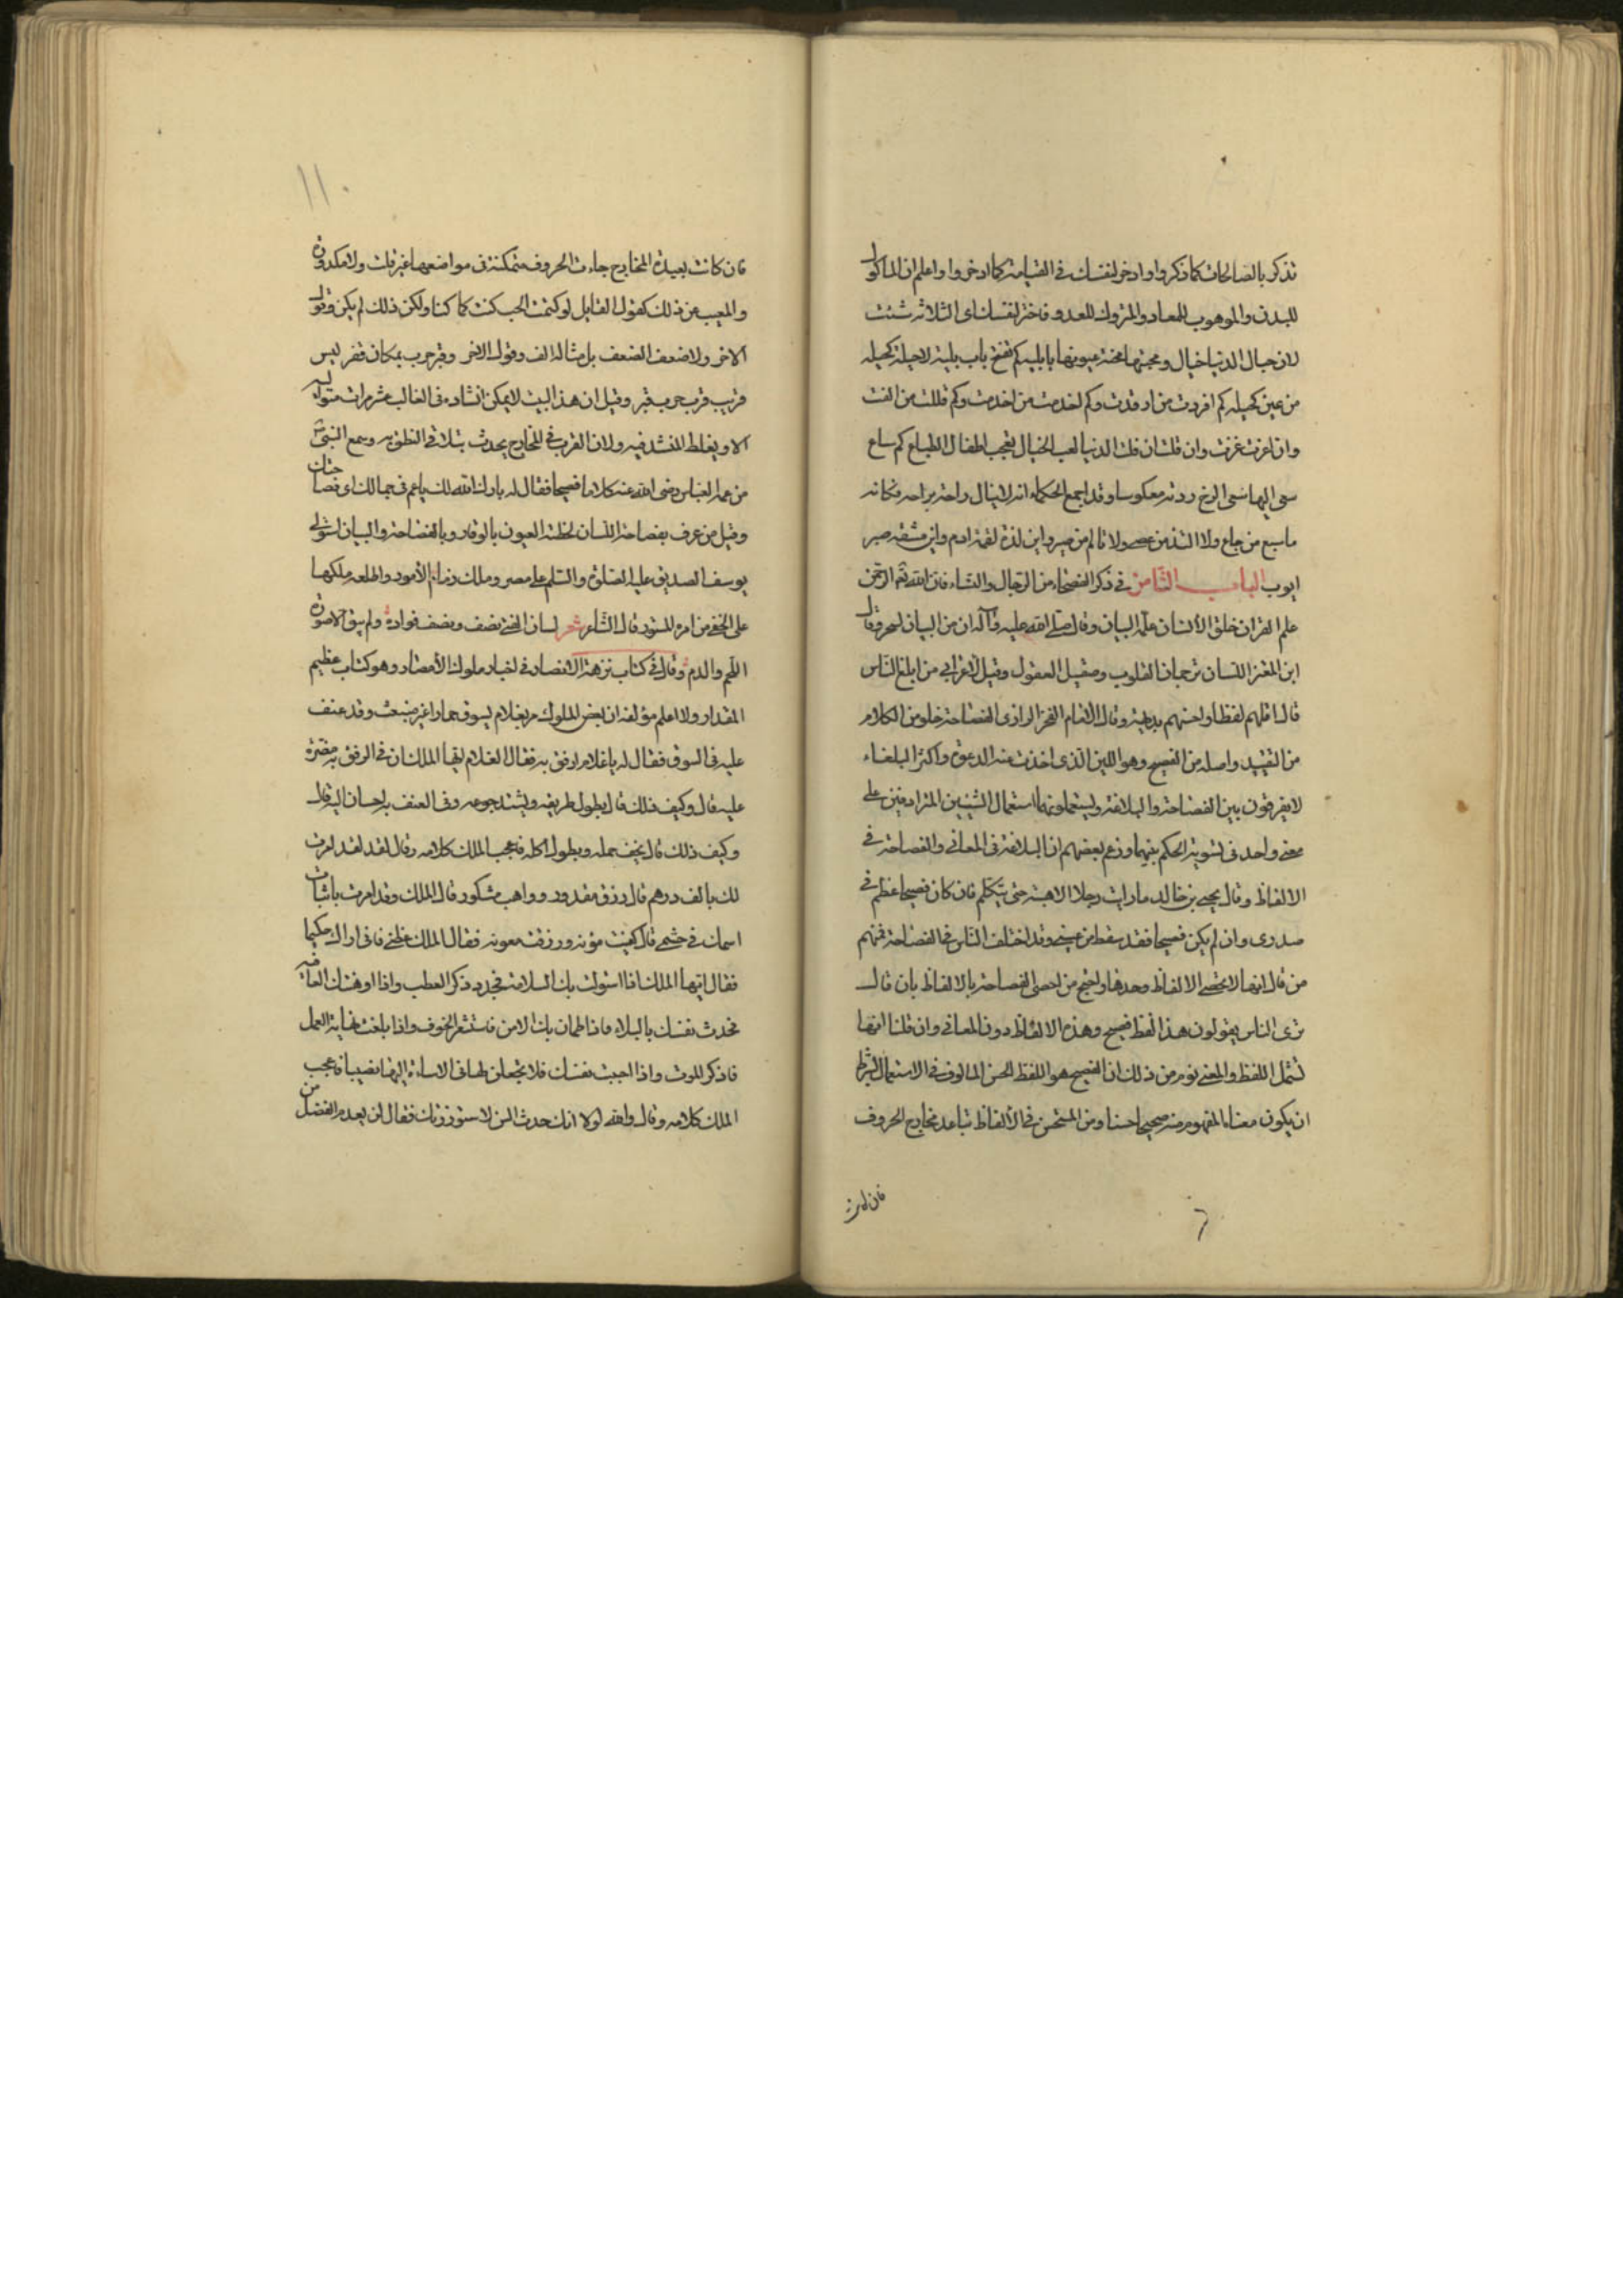 تذكر بالصالحات كما ذكروا وادخر لنفسك في القيامة كما ادخروا واعلم ان المأكول
للبدن والموهوب للمعاد والمتروك للعدو فاختر لنفسك اى الثلاثة شئت
لان خيال الدنيا خيال ومحبتها محنة عيونها بابلية كم تفتح باب بلية لاحيلة كحيله
من عين كحيله كم افردت من ارفدت وكم اخدمت من اخدمت وكم فللت من الفت
وان اعزت غرت وان قلت ان فلك الدنيا لعب الخيال يعجب اطفال الطباع كم ساع
سعى اليها سعى الرخ ردته معكوسا وقد اجمع الحكماء انه لاينال راحة براحة فكانه
ماسبع من جاع ولا التذ من عصى ولا تالم من صبر واين لذة لقمة ادم واين مشقة صبر
ايوب الباب الثامن في ذكر الفصحاء من الرجال والنساء قال الله تع الرحمن
علم القران خلق الانسان علمه البيان وقال صلى الله عليه وآله ان من البيان لسحر وقال
ابن المعتز اللسان ترجمان القلوب وصقيل العقول وقيل لاعرابي من ابلغ الناس
قال اقلهم لفظا واحسنهم بديهة وقال الامام الفخر الرازى الفصاحة خلو من الكلام
من التعقيد واصله من الفصيح وهو اللبن الذى اخذت منه الدعوة واكثر البلغاء
لايفرقون بين الفصاحة والبلاغة ويستعملونهما استعمال الشيئين المترادفين على
معنى واحد فى تسوية الحكم بينهما وزعم بعضهم ان البلاغة فى المعانى والفصاحة في
الالفاظ وقال يحيى بن خالد مارايت رجلا الا هبته حتى يتكلم فان كان فصيحا عظم في
صدرى وان لم يكن فصيحا فقد سقط من عينى وقد اختلف الناس في الفصاحة فمنهم
من قال انها لاتخص الالفاظ وحدها واحتج من خص الفصاحة بالالفاظ بان قال
نرى الناس يقولون هذا لفظ فصيح وهذه الالفاظ دون المعانى وان قلنا انها
تشمل اللفظ والمعنى يوم من ذلك ان الفصيح هو اللفظ الحسن المالوف في الاستعمال بشرط
ان يكون معناه المفهوم منه صحيحا حسنا ومن المستحسن في الالفاظ تباعد مخارج الحروف
فان كانت
١١٠
فان كانت بعيدة المخارج جاءت الحروف متمكنة فى مواضعها غير قلقة ولا مكدودة
والمعيب من ذلك كقول القايل لو كتمت الحب كنت كما كنا ولكن ذلك لم يكن وقول
الاخر ولا ضعف الضعف بل مثاله الف وقول الاخر وقبر حرب بمكان قفر ليس
قريب قرب حرب قبر وقيل ان هذا البيت لايمكن انشاده فى الغالب عشر مرات متوالية
الا ويغلط المنشد فيه ولان القرب في المخارج يحدث ثقلا في النطق به وسمع النبي
من عمه العباس رضى الله عنه كلاما فصيحا فقال له بارك الله لك ياعم فى جمالك اى فصاحتك
وقيل من عرف بفصاحة اللسان لحظته العيون بالوقار وبالفصاحة والبيان استولى
يوسف الصديق عليه الصلوة والسلم على مصر وملك زمام الامور واطلعه ملكها
على الخفى من امره المستور قال الشاعر شعر لسان الفتى نصف ونصف فواده ولم يبق الا صورة
اللحم والدم وقال فى كتاب نزهة الابصار فى اخبار ملوك الامصار وهو كتاب عظيم
المقدار ولا اعلم مؤلفه ان بعض الملوك مر بغلام يسوق حمارا غير منبعث وقد عنف
عليه فى السوق فقال له ياغلام ارفق به فقال الغلام ايها الملك ان فى الرفق به مضرة
عليه قال وكيف ذلك قال يطول طريقه ويشتد جوعه وفى العنف به احسان اليه قال
وكيف ذلك قال يخف حمله ويطول اكله فاعجب الملك كلامه وقال لقد لقد امرت
لك بالف درهم قال رزق مقدور وواهب مشكور قال الملك وقد امرت باثبات
اسمك فى حشمى قال كفيت مؤنه ورزقت معونه فقال الملك عظنى فانى اراك حكيما
فقال ايها الملك اذا استولت بك السلامة فجدد ذكر العطب واذا اوهنتك العافيه
فحدث نفسك بالبلاء واذا اطمان بك الامن فاستشعر الخوف واذا بلغت نهاية العمل
فاذكر الموت واذا احببت نفسك فلا تجعلن لها فى الاساءة اليها نصيبا فاعجب
الملك كلامه وقال والله لولا انك حدث السن لاستوزرتك فقال لن يعدم الفضل من